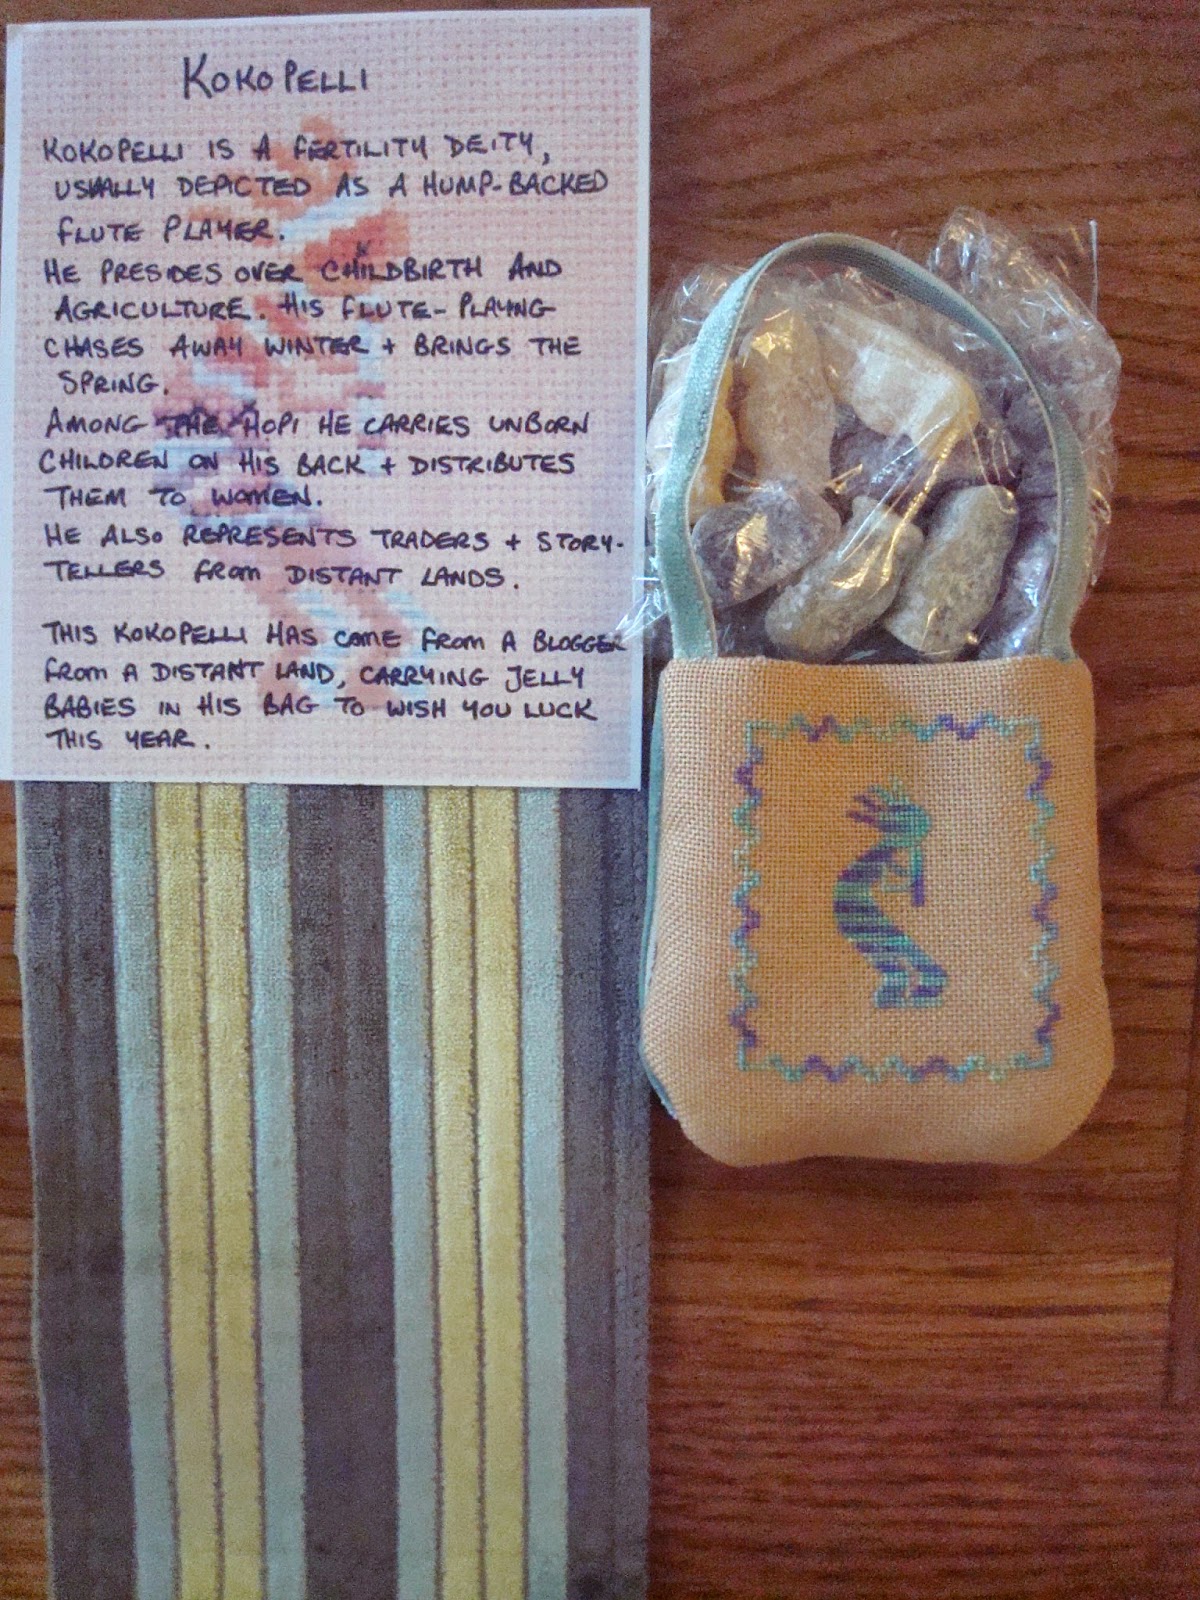 KOKOPELLI
KOKOPELLI IS A FERTILITY DEITY,
USUALLY DEPICTED AS A HUMP-BACKED
FLUTE PLAYER.
HE PRESIDES OVER CHILDBIRTH AND
AGRICULTURE. HIS FLUTE-PLAYING
CHASES AWAY WINTER + BRINGS THE
SPRING.
AMONG THE HOPI HE CARRIES UNBORN
CHILDREN ON HIS BACK + DISTRIBUTES
THEM TO WOMEN.
HE ALSO REPRESENTS TRADERS + STORY-
TELLERS FROM DISTANT LANDS.
THIS KOKOPELLI HAS COME FROM A BLOGGER
FROM A DISTANT LAND, CARRYING JELLY
BABIES IN HIS BAG TO WISH YOU LUCK
THIS YEAR.